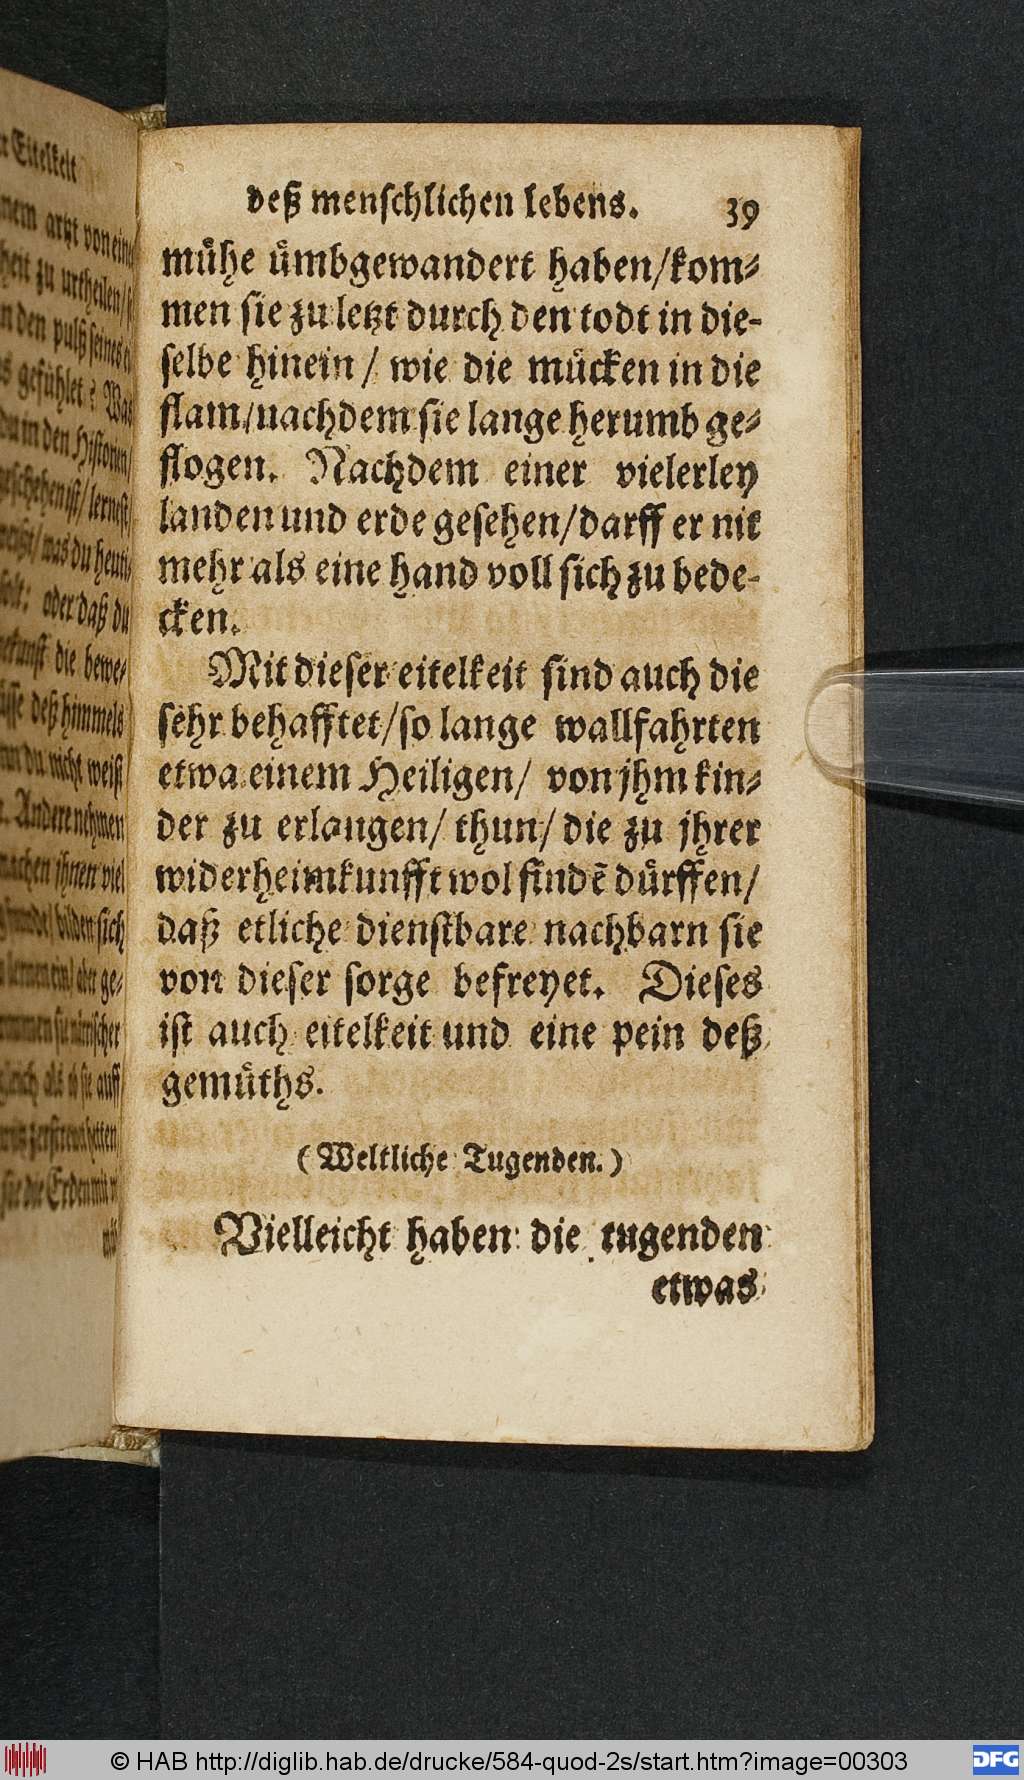 r Eitelkeit
nem artzt von eine
hen zu urtheilen/
n den pulß seines
s gefühlet? Was
du in den Historien/
geschehen ist/lernest/
was du heuti-
oder daß du
kunst die bewe-
deß himmels
du nicht weist/
Andere nehmen
machen ihnen viel
bilden sich
aber ge-
auff
sie die Erden mit
mü-
deß menschlichen lebens. 39
mühe ümbgewandert haben/kom-
men sie zu letzt durch den todt in die-
selbe hinein / wie die mücken in die
flam/nachdem sie lange herumb ge-
flogen. Nachdem einer vielerley
landen und erde gesehen/darff er nit
mehr als eine hand voll sich zu bede-
cken.
Mit dieser eitelkeit sind auch die
sehr behafftet/so lange wallfahrten
etwa einem Heiligen/ von jhm kin-
der zu erlangen/ thun/ die zu jhrer
widerheimkunfft wol findē dürffen/
daß etliche dienstbare nachbarn sie
von dieser sorge befreyet. Dieses
ist auch eitelkeit und eine pein deß
gemüths.
(Weltliche Tugenden.)
Vielleicht haben die tugenden
etwas
© HAB http://diglib.hab.de/drucke/584-quod-2s/start.htm?image=00303
DFG